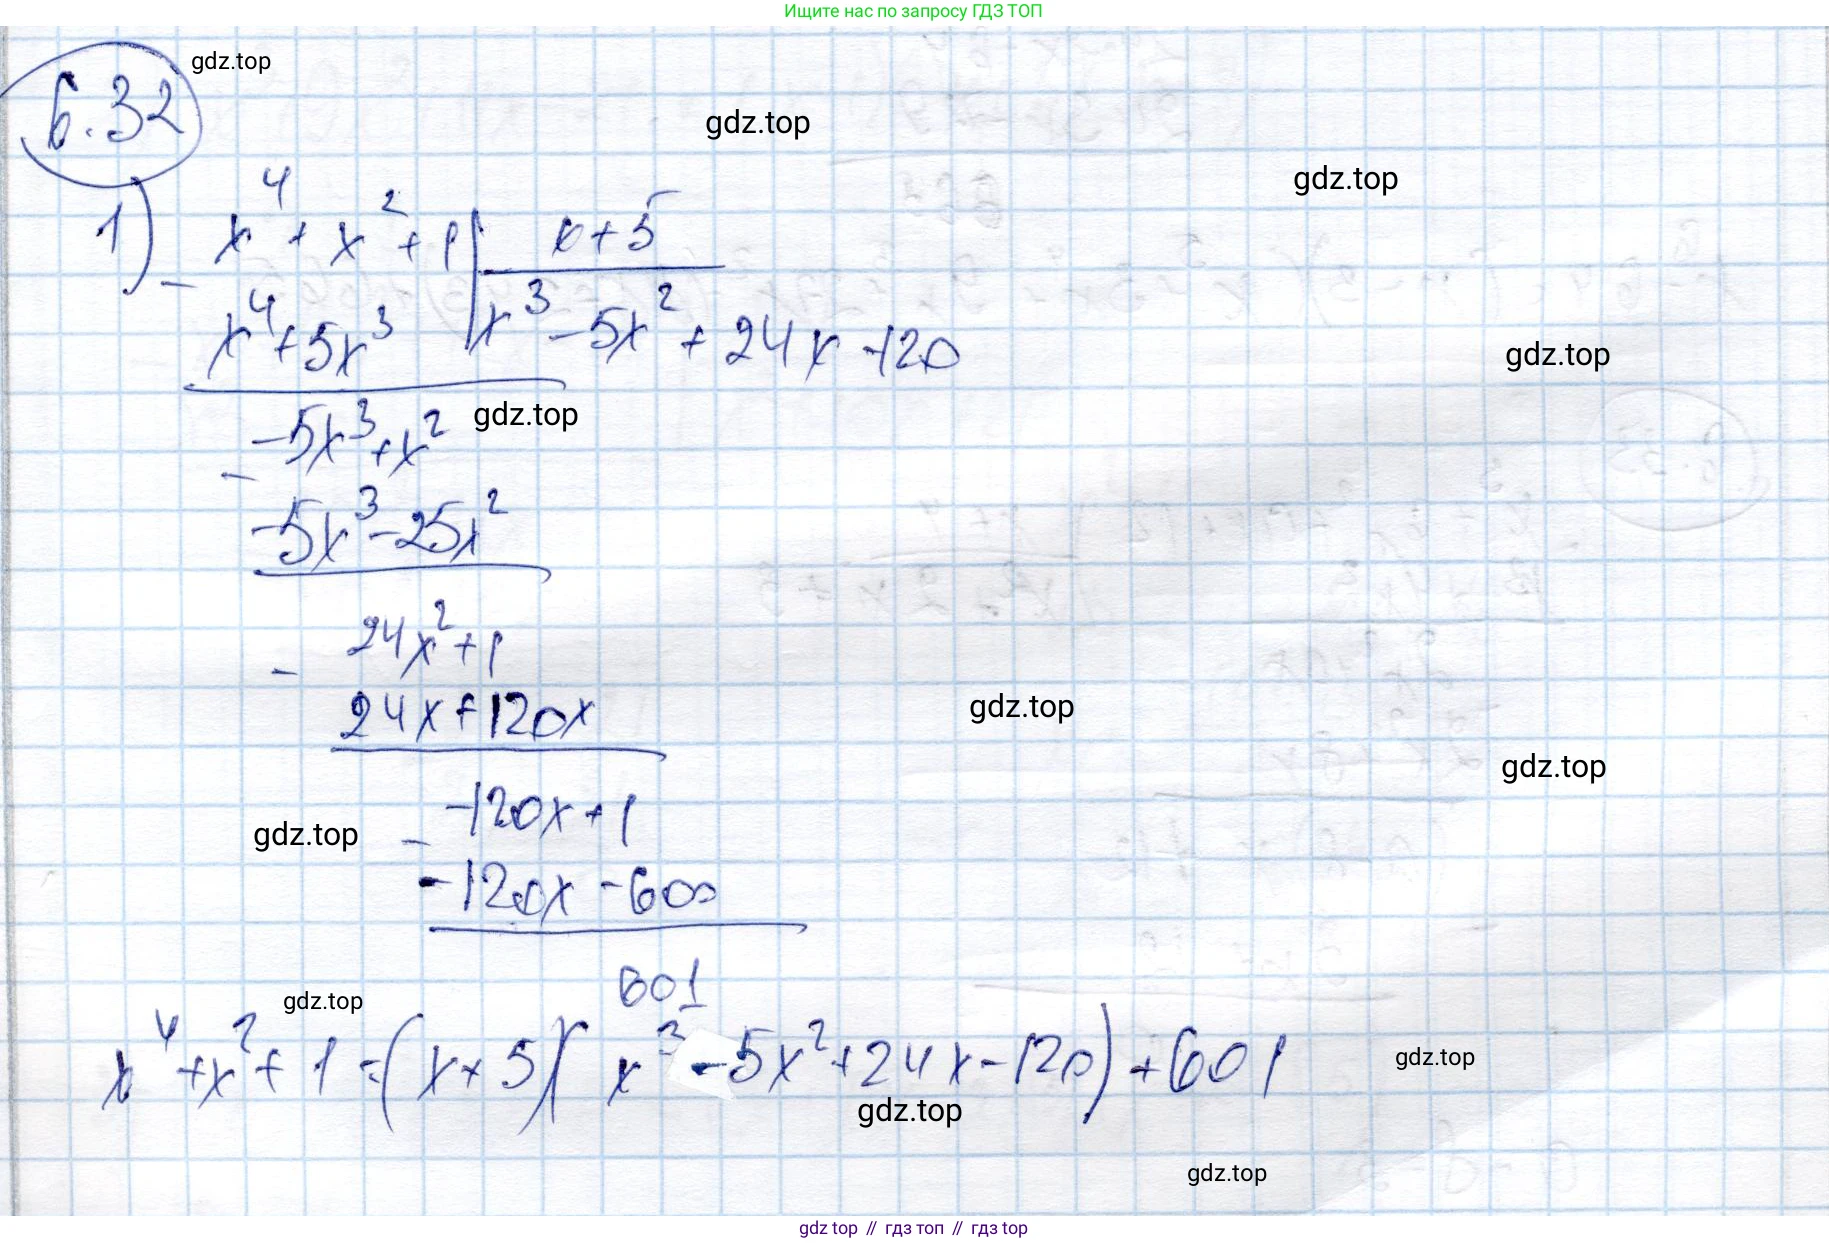 Ищите нас по запросу ГДЗ ТОП
6.32 gdz.top
gdz.top
gdz.top
1) x⁴ + x² + 1 | x + 5
- x⁴ + 5x³ | x³ - 5x² + 24x - 120
gdz.top
gdz.top
-5x³ + x²
- -5x³ - 25x²
24x² + 1
- 24x + 120x
gdz.top
gdz.top
-120x + 1
gdz.top
- -120x - 600
601
gdz.top
x⁴ + x² + 1 = (x + 5)(x³ - 5x² + 24x - 120) + 601
gdz.top
gdz.top
gdz.top
gdz top // гдз топ // гдз top